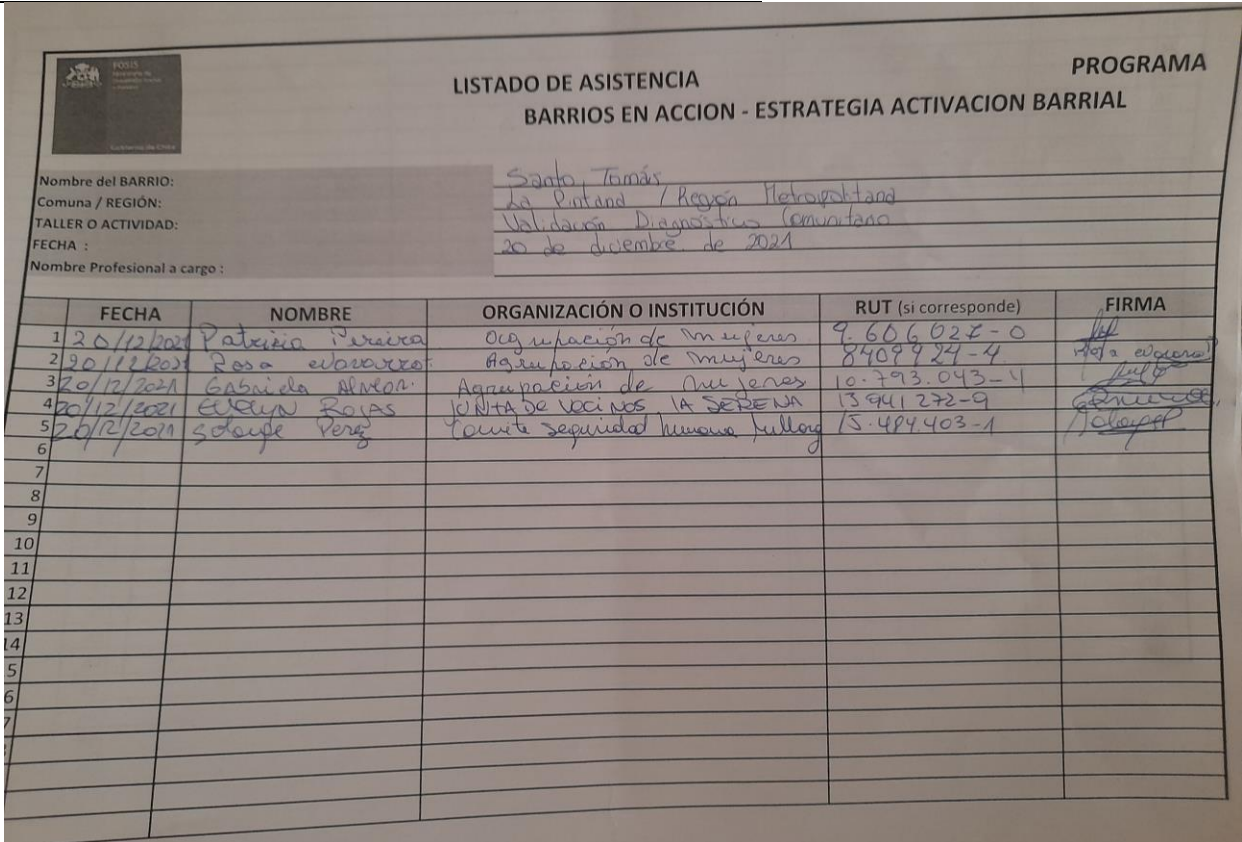 FOSIS
Gobierno de Chile
PROGRAMA
LISTADO DE ASISTENCIA
BARRIOS EN ACCION - ESTRATEGIA ACTIVACION BARRIAL
Nombre del BARRIO: Santo Tomás
Comuna / REGIÓN: La Pintana / Región Metropolitana
TALLER O ACTIVIDAD: Validación Diagnóstico Comunitario
FECHA : 20 de diciembre de 2021
Nombre Profesional a cargo :
FECHA NOMBRE ORGANIZACIÓN O INSTITUCIÓN RUT (si corresponde) FIRMA
1 20/12/2021 Patricia Pereira Agrupación de mujeres 9.606027-0
2 20/12/2021 Rosa Navarro Agrupación de mujeres 8409924-4
3 20/12/2021 Gabriela 10.793.043-4 Agrupación de mujeres
4 20/12/2021 EVELYN ROJAS JUNTA DE VECINOS LA SERENA 13941272-9
5 20/12/2021 Solange Perez Comite seguridad humana 15.484.403-1
6
7
8
9
10
11
12
13
14
5
6
7